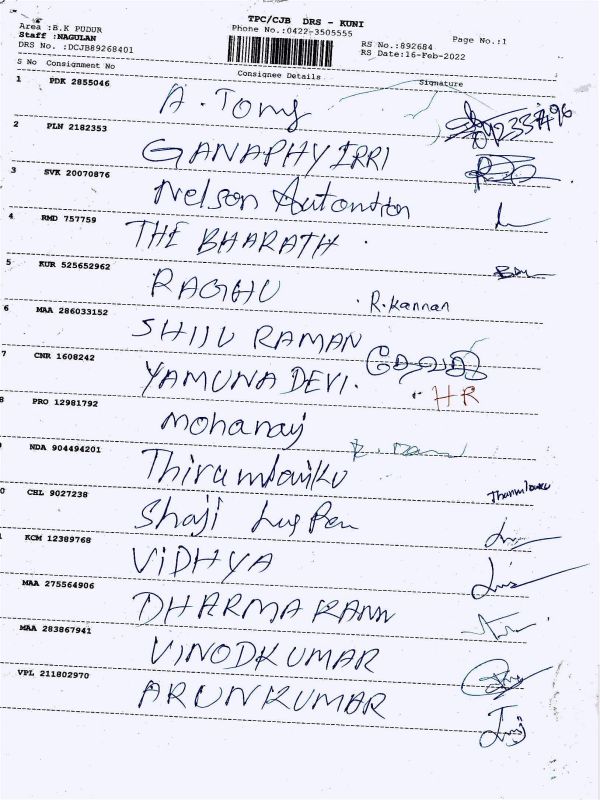 TPC/CJB DRS - KUNI
Area :B.K PUDUR
Phone No.:0422-3505555
Staff :NAGULAN
RS No.:892684
Page No.:1
DRS No. :DCJB89268401
RS Date:16-Feb-2022
S No Consignment No
Consignee Details
Signature
1 PDK 2855046
A. Tony
2 PLN 2182353
GANAPHY IRRI
3 SVK 20070876
Nelson
4 RMD 757759
THE BHARATH
5 KUR 525652962
RAGHU
R.Kannan
6 MAA 286033152
SHIJU RAMAN
7 CNR 1608242
YAMUNA DEVI.
HR
PRO 12981792
Mohanaj
NDA 904494201
0 CHL 9027238
Shaji
KCM 12389768
VIDHYA
MAA 275564906
DHARMA KANN
MAA 283867941
VINODKUMAR
VPL 211802970
ARUNKUMAR